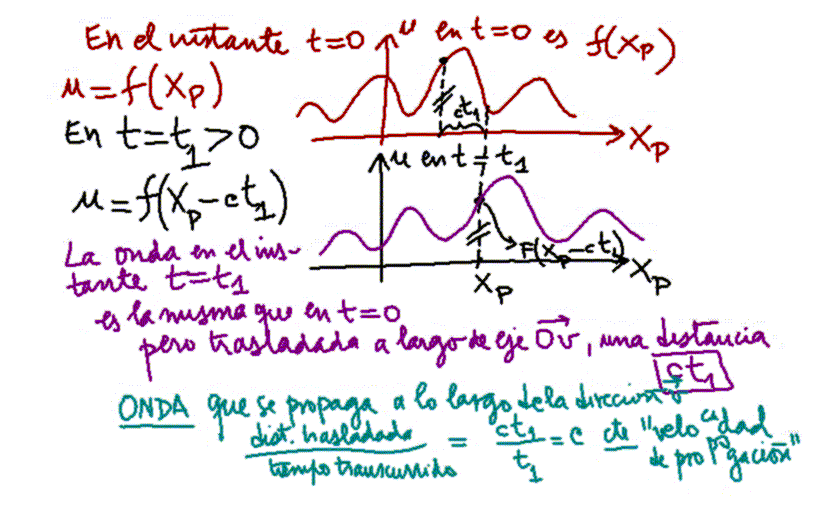 En el instante t=0
u en t=0 es f(x_p)
u = f(x_p)
ct_1
x_p
En t=t_1>0
u en t=t_1
u=f(x_p-ct_1)
F(x_p-ct_1)
x_p
x_p
La onda en el ins-
tante t=t_1
es la misma que en t=0
pero trasladada a largo de eje Ov, una distancia
ct_1
ONDA que se propaga a lo largo de la dirección v
dist. trasladada / tiempo transcurrido = ct_1 / t_1 = c cte "velocidad
de propagación"